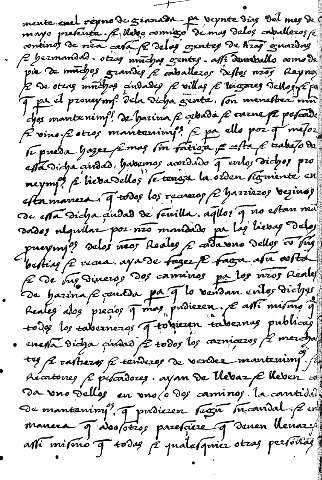 mente en el reyno de granada pa veynte dias del mes de
mayo presente. se llevo comigo de mas delos cavalleros se
continos de mea casa se delas gentes de mis guardas
se hermandad. otras muchas gentes. assi de cavallo como de
pie de muchos grandes se cavalleros destos mros Reynos
se de otras muchas cibdades se villas se lugares dellos se pa
q pa el proveymi° dela dicha gente. son menester mu
chos mantenimi°s de harina se cevada se carne se pescado
se vino se otros mantenimi°s se pa ello por q mejor
se pueda hazer se mas sin fatiga se costa se trabajo de
essa dicha cibdad. havemos acordado q enlos dichos pro
veymi°s se lieva dellos se tenga la orden siguiente en
esta manera q todos los recueros se harrieros vezinos
de essa dicha cibdad de sevilla. aqllos q no estan man
dados alquilar por mro mandado pa las lievas delos
proveymi°s delos mros Reales se cada uno dellos con sus
bestias se recua. aya de fazer se faga a su costa
se de sus dineros dos caminos pa los mros Reales
de harina se cevada pa q lo vendan enlos dichos
Reales alos precios q mas pudieren. se assi mismo q
todos los taverneros q tovieren tavernas publicas
en essa dicha cibdad se todos los carniceros se mercha
tes se rastreros se tenderos de vender mantenimi°s se
Recatones se pescadores. ayan de llevar se lleven ca
da uno dellos en uno o dos caminos. la cantidad
de mantenimi°s q pudieren segun su caudal. se en
manera q a vosotros paresciere q deven llevar.
assi mismo q todas se qualesquier otras personas